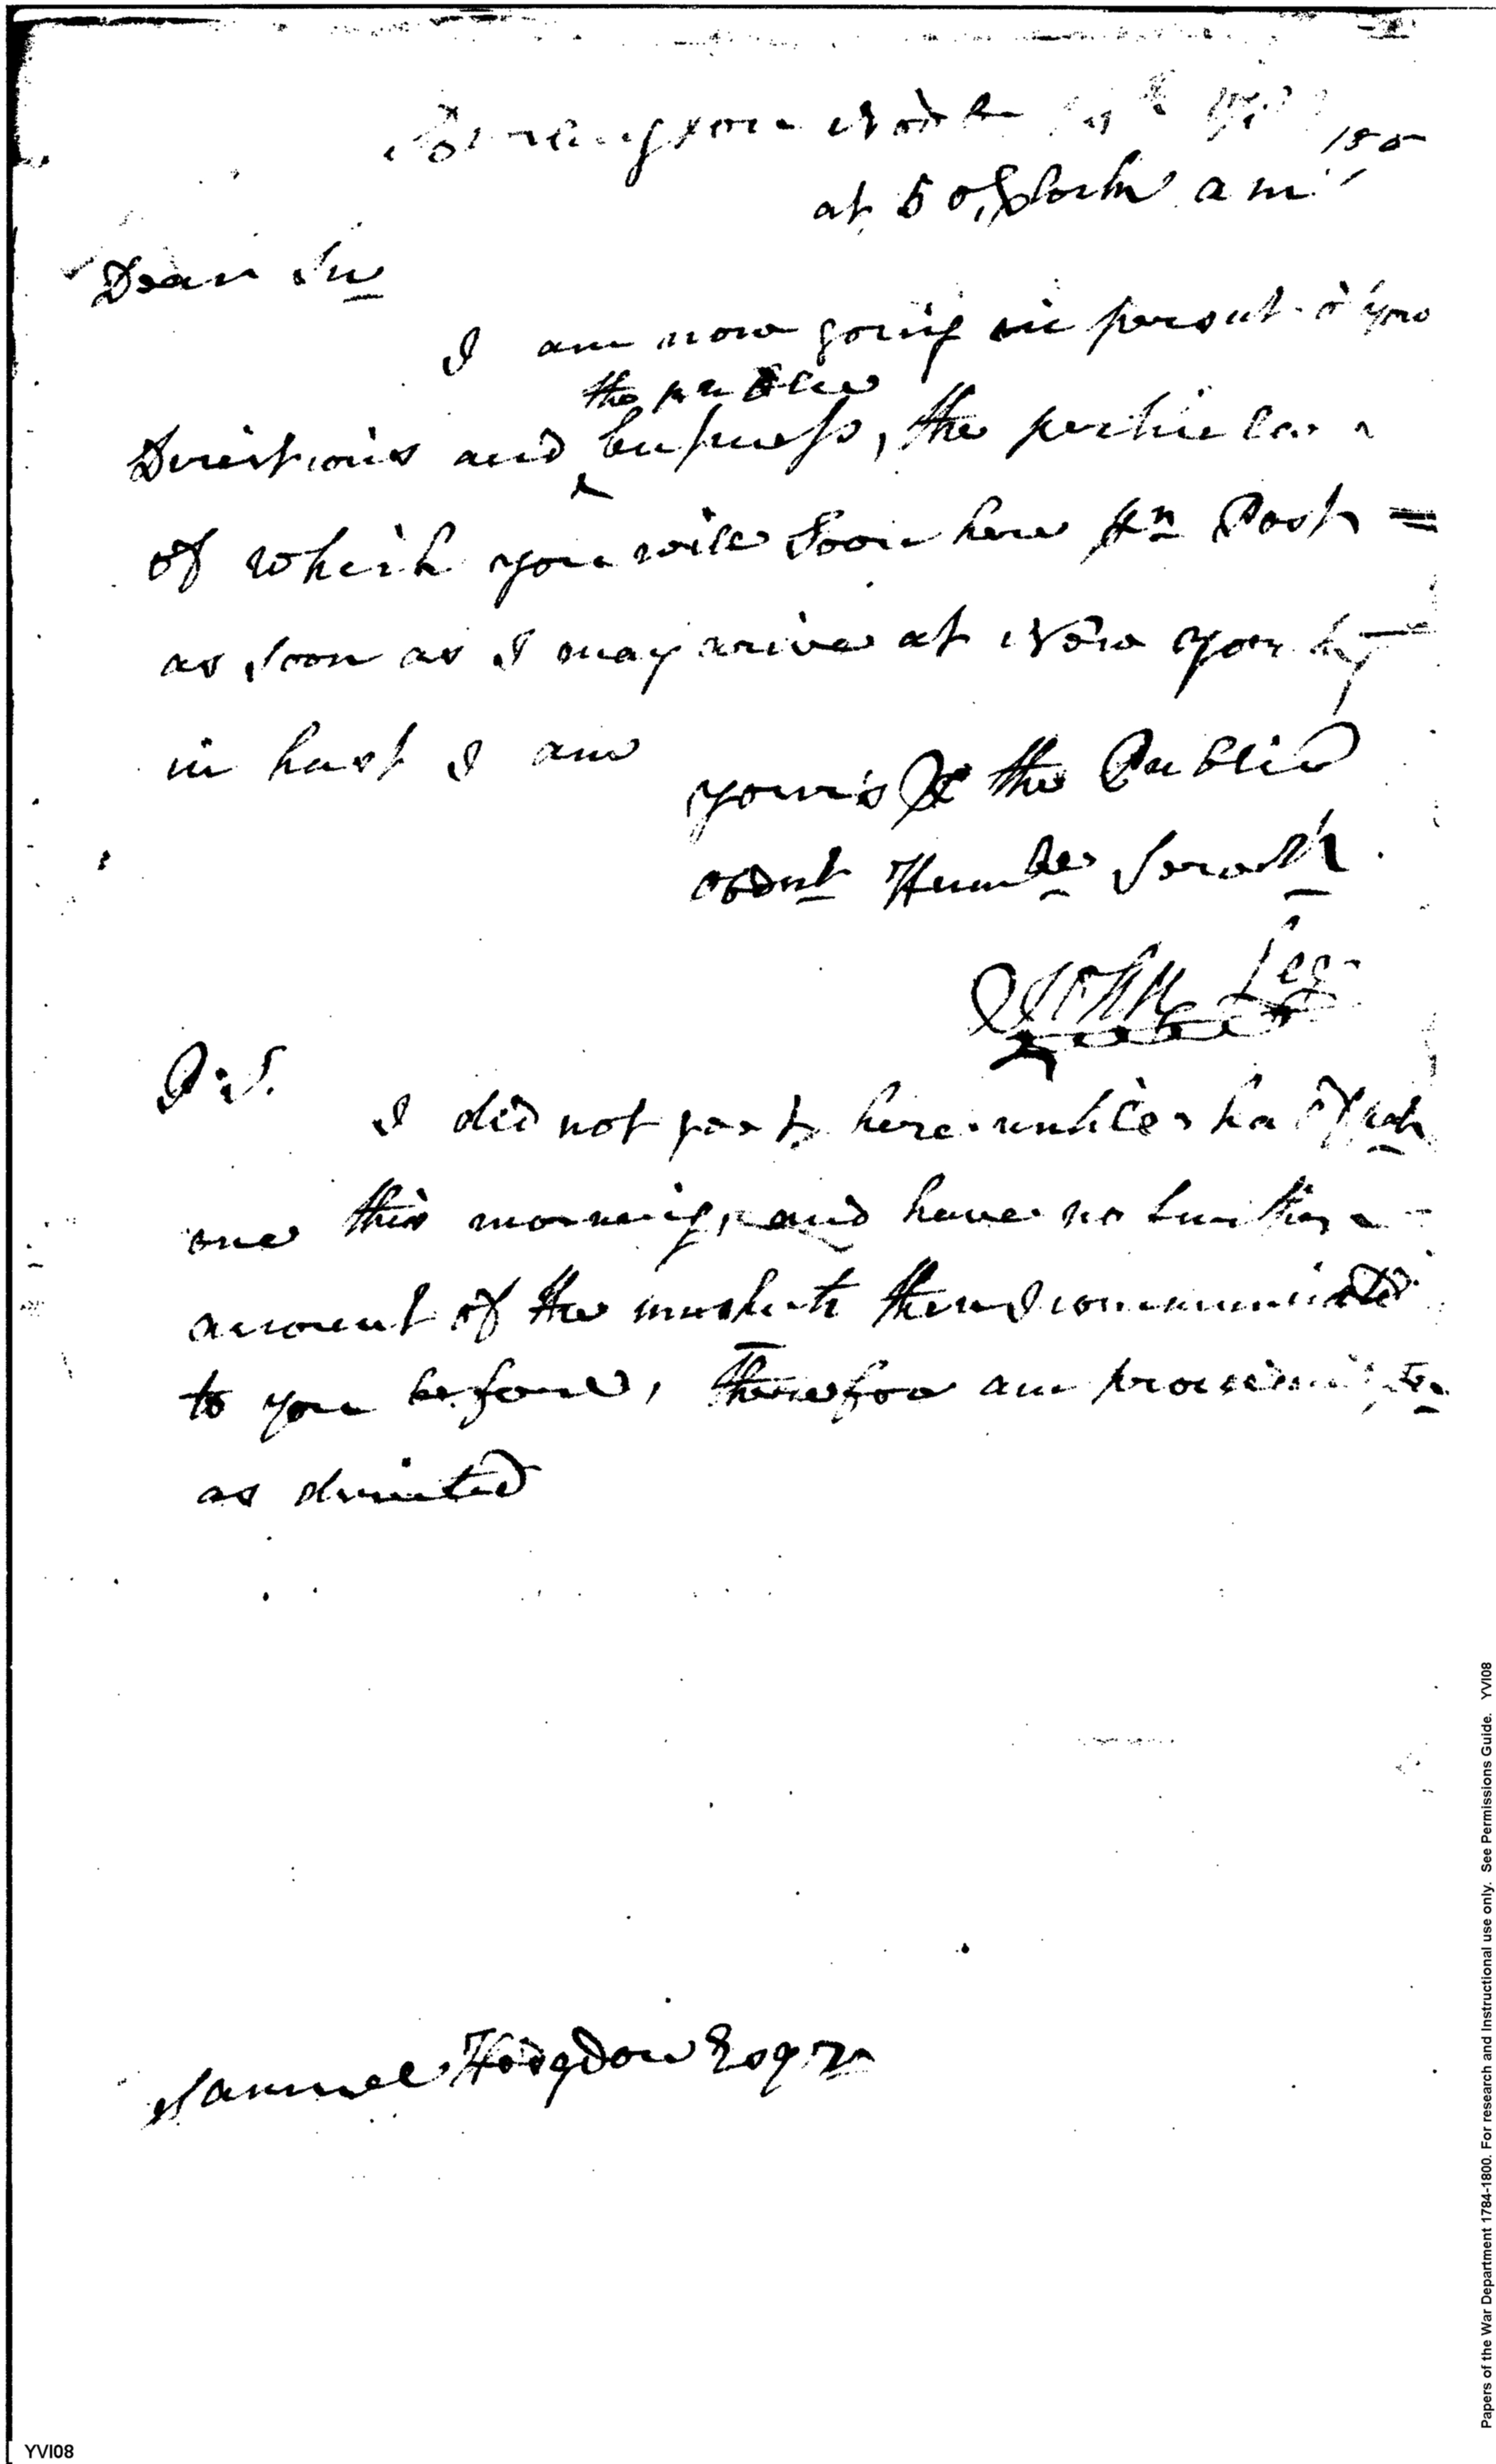 at 5 oClock am
Dear Sir
I am now going in persut of your
the publick
Directions and business, the perticular
of which you will Soon here pr Post =
as soon as I may arive at New York
in hast I am
yours & the Public
obdnt Humble Servnt
John Lee
P.S. I did not here untile half past
one this morning, and have no further
account of the muskets then I communicated
to you before, Therefor am
as directed
Samuel Hodgdon Esqr
Papers of the War Department 1784-1800. For research and Instructional use only. See Permissions Guide. YVI08
YVI08